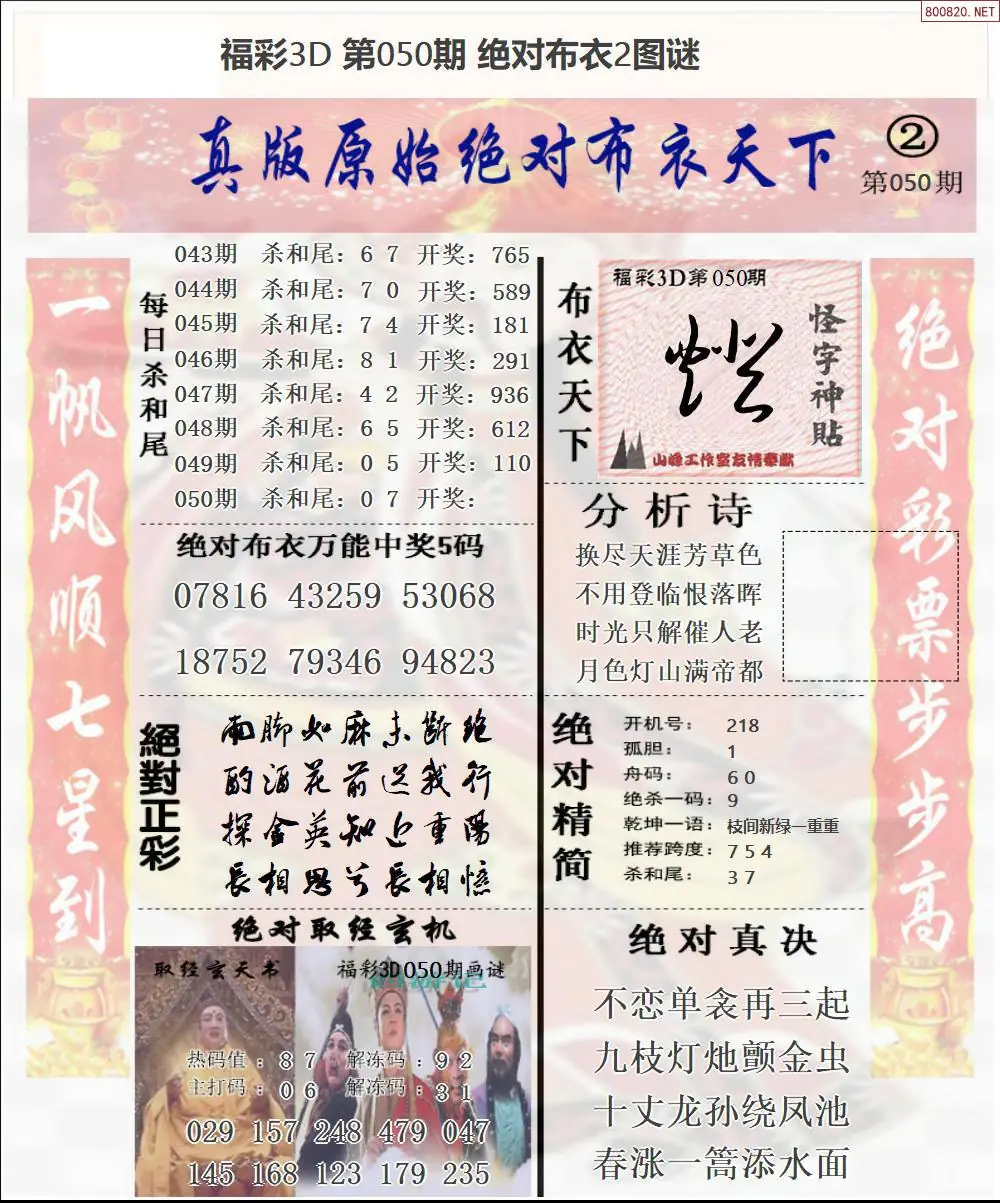 800820.NET
福彩3D 第050期 绝对布衣2图谜
真版原始绝对布衣天下
②
第050期
一帆风顺七星到
每日杀和尾
043期 杀和尾：6 7 开奖：765
044期 杀和尾：7 0 开奖：589
045期 杀和尾：7 4 开奖：181
046期 杀和尾：8 1 开奖：291
047期 杀和尾：4 2 开奖：936
048期 杀和尾：6 5 开奖：612
049期 杀和尾：0 5 开奖：110
050期 杀和尾：0 7 开奖：
绝对布衣万能中奖5码
07816 43259 53068
18752 79346 94823
絕對正彩
雨脚如麻未断绝
酌酒花前送我行
探金英知近重陽
長相思兮長相憶
绝对取经玄机
取经玄天书
福彩3D050期画谜
热码值：8 7 解冻码：9 2
主打码：0 6 解冻码：3 1
029 157 248 479 047
145 168 123 179 235
布衣天下
福彩3D第050期
怪字神貼
山峰工作室友情奉献
分析诗
换尽天涯芳草色
不用登临恨落晖
时光只解催人老
月色灯山满帝都
绝对精简
开机号： 218
孤胆： 1
舟码： 6 0
绝杀一码：9
乾坤一语：枝间新绿一重重
推荐跨度：7 5 4
杀和尾： 3 7
绝对真决
不恋单衾再三起
九枝灯灺颤金虫
十丈龙孙绕凤池
春涨一篙添水面
绝对彩票步步高